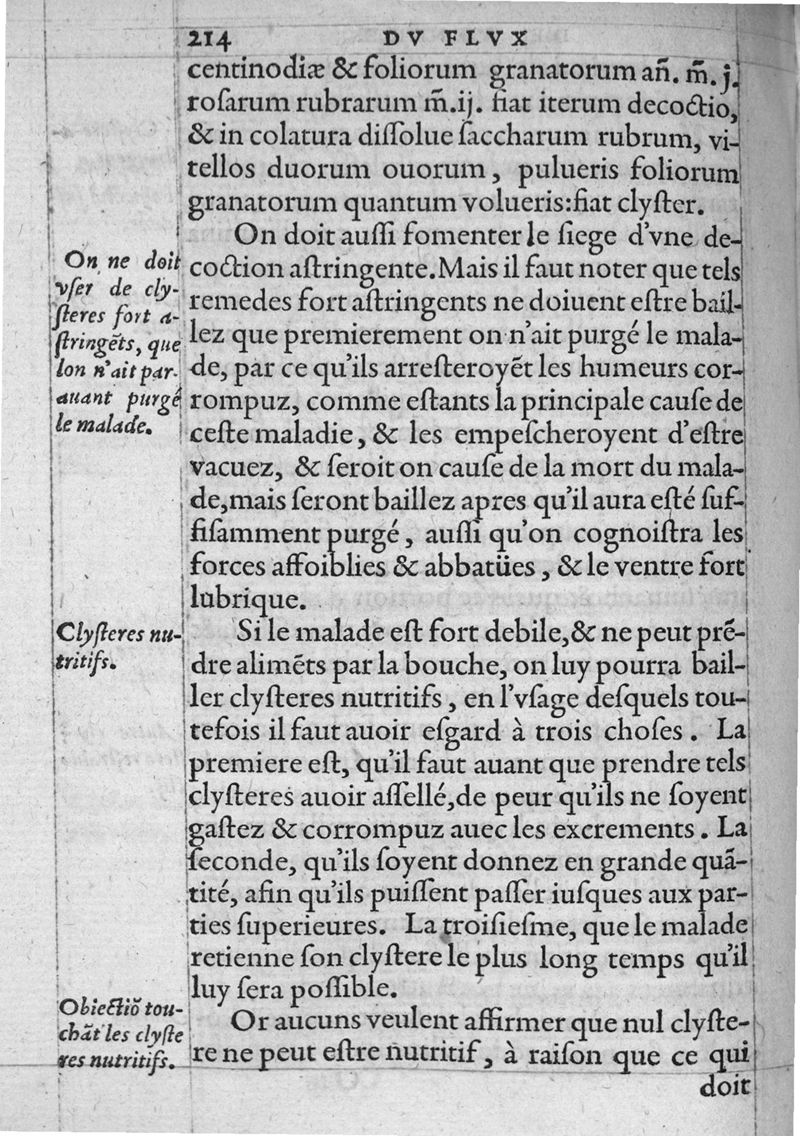 214 DV FLVX
centinodiæ & foliorum granatorum añ. m̃. j.
roſarum rubrarum m̃. ij. fiat iterum decoctio,
& in colatura diſſolue ſaccharum rubrum, vi-
tellos duorum ouorum, pulueris foliorum
granatorum quantum volueris: fiat clyſter.
On doit auſſi fomenter le ſiege d'vne de-
coction aſtringente. Mais il faut noter que tels
remedes fort aſtringents ne doiuent eſtre bail-
lez que premierement on n'ait purgé le mala-
de, par ce qu'ils arreſteroyẽt les humeurs cor-
rompuz, comme eſtants la principale cauſe de
ceſte maladie, & les empeſcheroyent d'eſtre
vacuez, & ſeroit on cauſe de la mort du mala-
de, mais ſeront baillez apres qu'il aura eſté ſuf-
fiſamment purgé, auſſi qu'on cognoiſtra les
forces affoiblies & abbatües, & le ventre fort
lubrique.
On ne doit
vſer de cly-
ſteres fort a-
ſtringẽts, que
lon n'ait par-
auant purgé
le malade.
Si le malade eſt fort debile, & ne peut prẽ-
dre alimẽts par la bouche, on luy pourra bail-
ler clyſteres nutritifs, en l'vſage deſquels tou-
tefois il faut auoir eſgard à trois choſes. La
premiere eſt, qu'il faut auant que prendre tels
clyſteres auoir aſſellé, de peur qu'ils ne ſoyent
gaſtez & corrompuz auec les excrements. La
ſeconde, qu'ils ſoyent donnez en grande quã-
tité, afin qu'ils puiſſent paſſer iuſques aux par-
ties ſuperieures. La troiſieſme, que le malade
retienne ſon clyſtere le plus long temps qu'il
luy ſera poſſible.
Clyſteres nu-
tritifs.
Or aucuns veulent affirmer que nul clyſte-
re ne peut eſtre nutritif, à raiſon que ce qui
doit
Obiectiõ tou-
chãt les clyſte
res nutritifs.